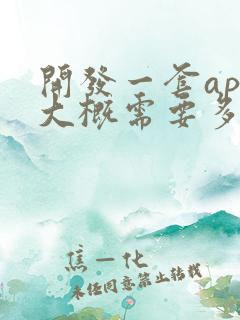 開發一套ap
大概需要多
焦一化
未经同意禁止转载